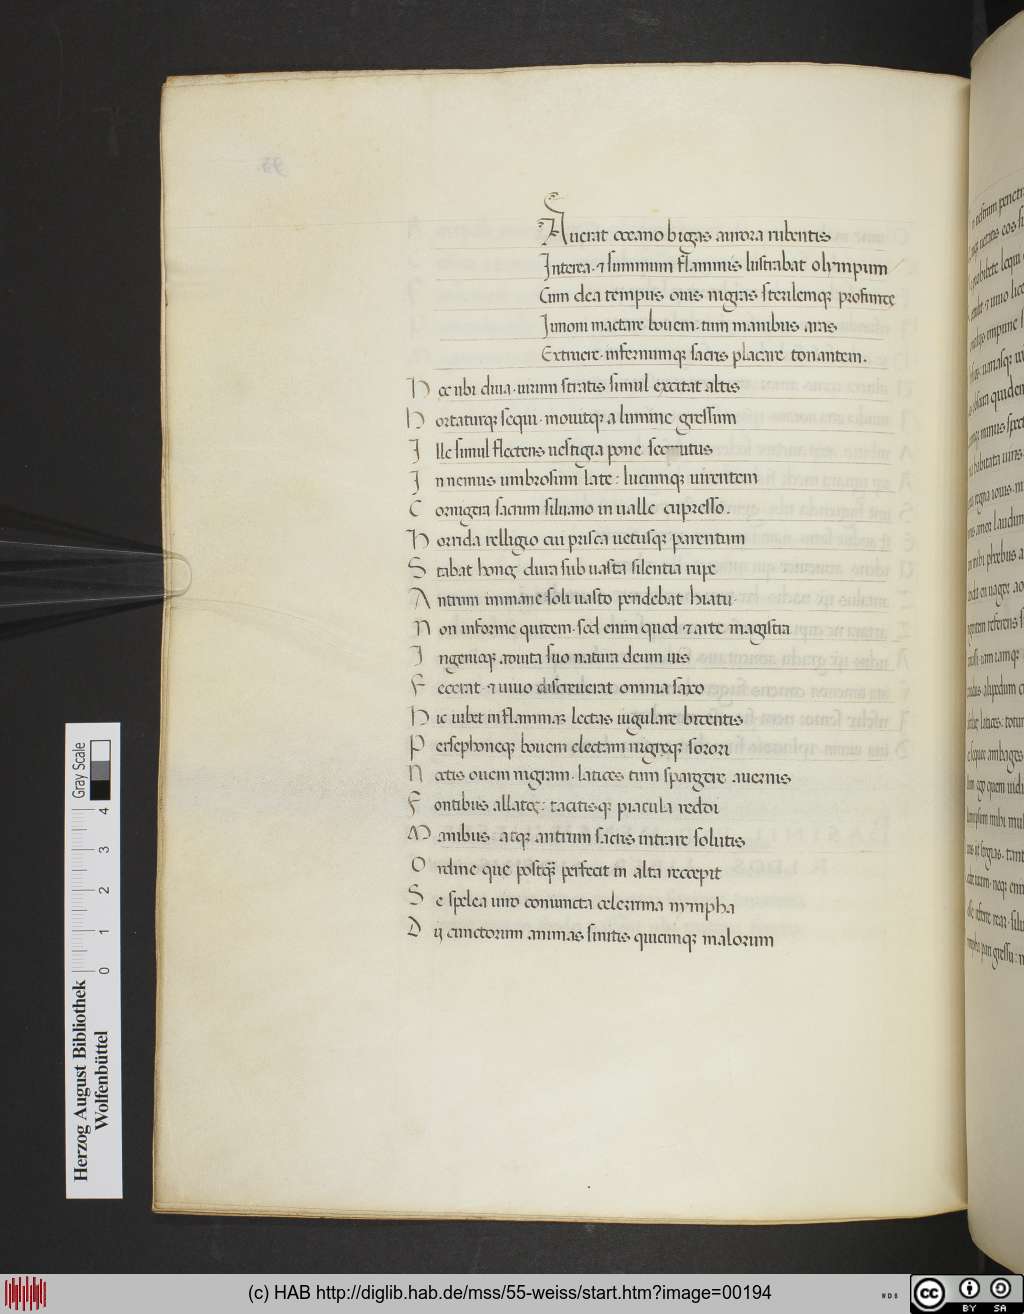 Auerat oceano bigas aurora rubentis
Interea · ⁊ summum flammis lustrabat olympum
Cum dea tempus ouis nigras sterilemq; profunde
Iunoni mactare bouem · tum manibus aras
Extruere · infernumq; sacris placare tonantem.
Hęc ubi diua · uirum stratis simul excitat altis
Hortaturq; sequi · mouitq; a lumine gressum
Ille simul flectens uestigia pone secutus
In nemus umbrosum late : lucumq; uirentem
Cornigera sacrum siluano in ualle cupresso.
Horrida relligio cui prisca uetusq; parentum
Stabat honos dura sub uasta silentia rupe
Antrum immane soli uasto pendebat hiatu ·
Non informe quidem · sed enim quod ⁊ arte magistra
Ingenioq; auita suo natura deum uis
Fecerat · ⁊ uiuo discreuerat omnia saxo
Hic iubet in flammas lectas iugulare bidentis
Persephoneq; bouem electam nigręq; sorori
Noctis ouem nigram · latices tum spargere auernis
Fontibus allatos : tacitisq; piacula reddi
Manibus · atq; antrum sacris intrare solutis
Ordine que postq̃ perfecit in alta recepit
Se spelea uiro coniuncta celerrima nympha
Dij cunctorum animas sinitis quicunq; malorum
Gray Scale
0 1 2 3 4
Herzog August Bibliothek
Wolfenbüttel
(c) HAB http://diglib.hab.de/mss/55-weiss/start.htm?image=00194
cc BY SA